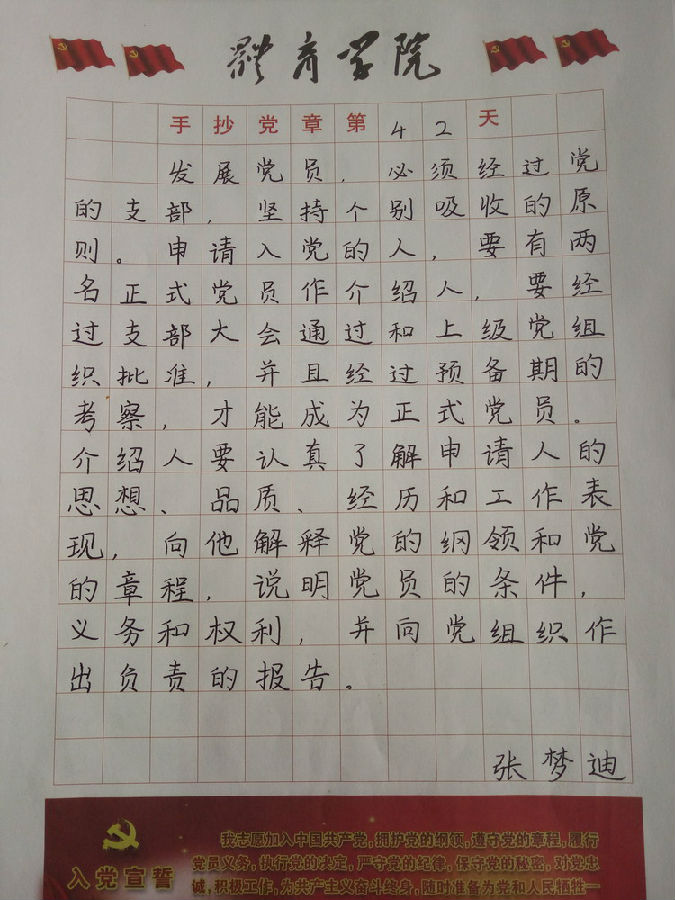 體育学院
手抄党章第42天
发展党员,必须经过党
的支部,坚持个别吸收的原
则。申请入党的人,要有两
名正式党员作介绍人,要经
过支部大会通过和上级党组
织批准,并且经过预备期的
考察,才能成为正式党员。
介绍人要认真了解申请人的
思想、品质、经历和工作表
现,向他解释党的纲领和党
的章程,说明党员的条件,
义务和权利,并向党组织作
出负责的报告。
张梦迪
入党宣誓
我志愿加入中国共产党,拥护党的纲领,遵守党的章程,履行
党员义务,执行党的决定,严守党的纪律,保守党的秘密,对党忠
诚,积极工作,为共产主义奋斗终身,随时准备为党和人民牺牲一